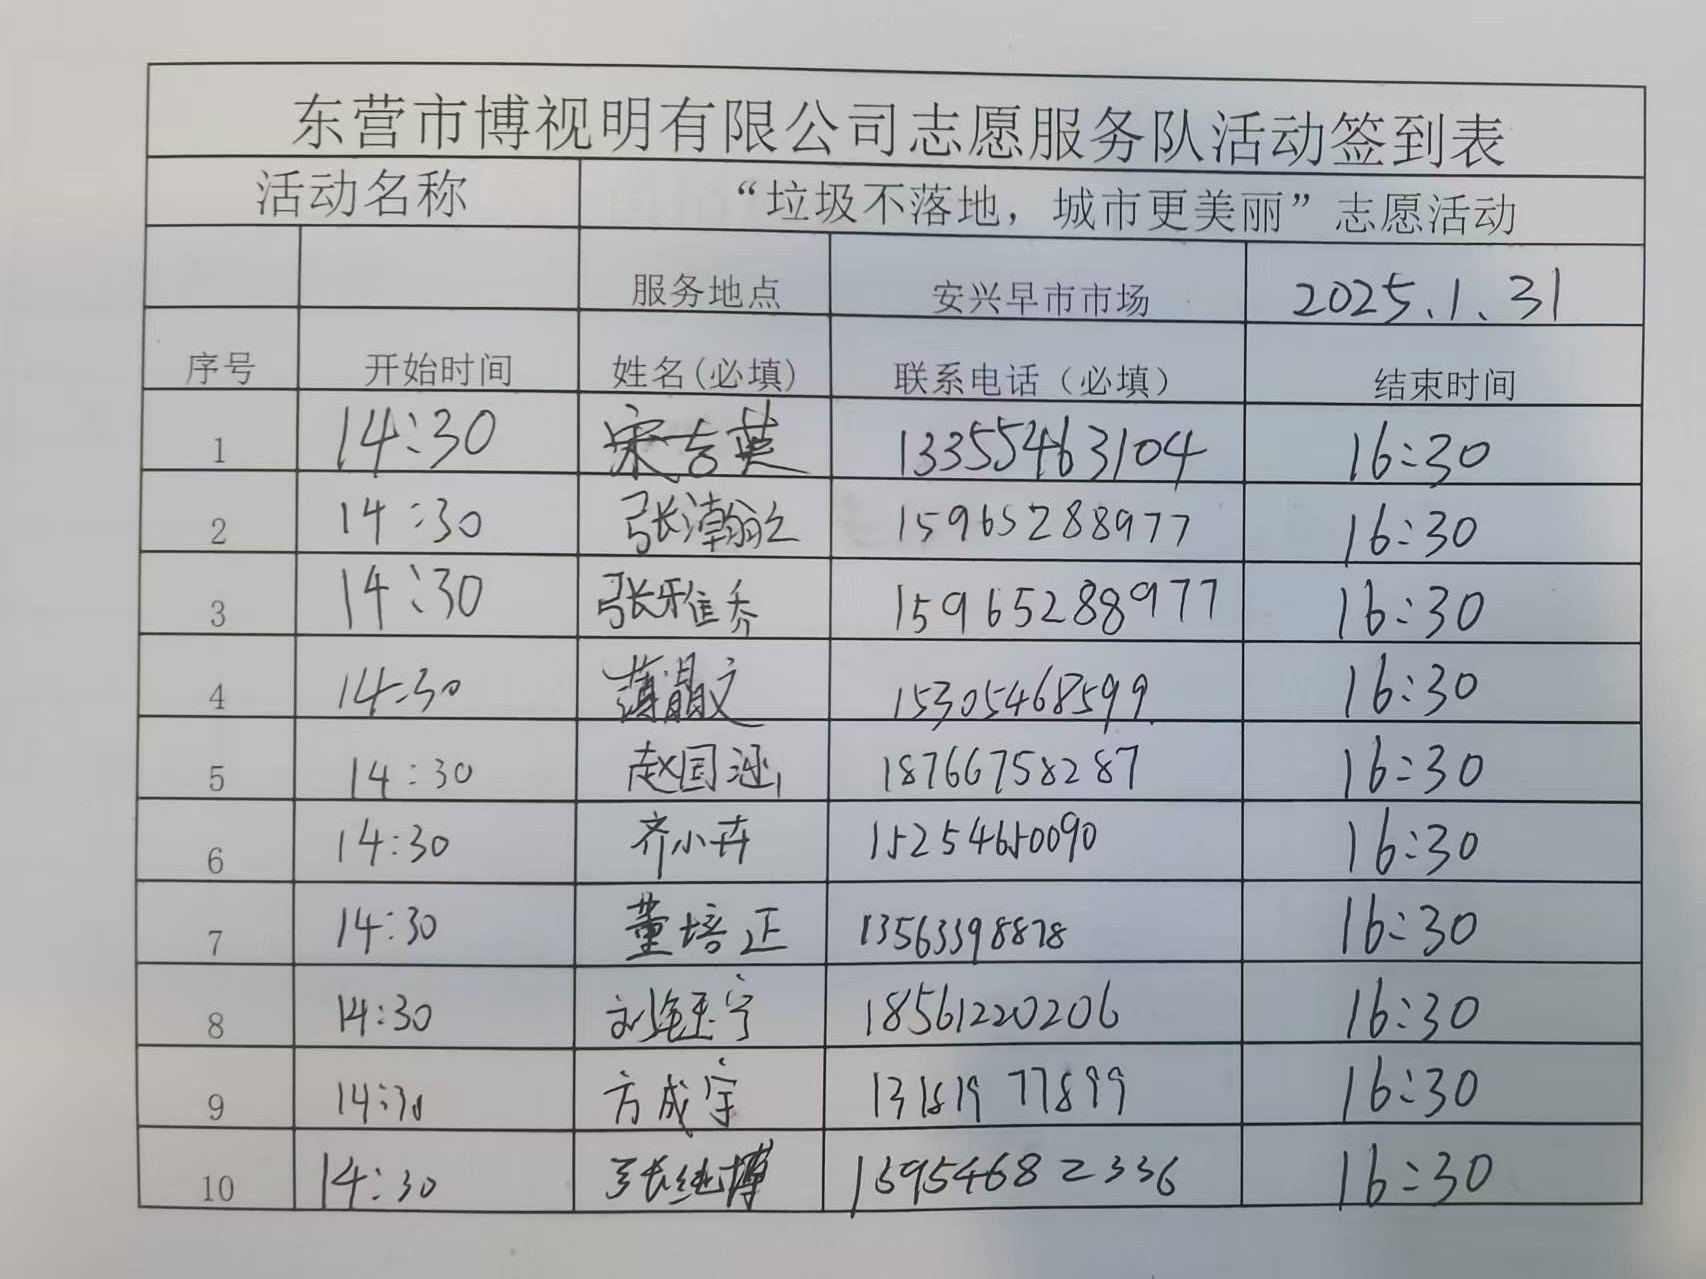 东营市博视明有限公司志愿服务队活动签到表
活动名称 “垃圾不落地，城市更美丽”志愿活动
服务地点 安兴早市市场 2025.1.31
序号 开始时间 姓名(必填) 联系电话（必填） 结束时间
1 14:30 宋吉英 13355463104 16:30
2 14:30 张瀚之 15965288977 16:30
3 14:30 张雅乔 15965288977 16:30
4 14:30 薄晶文 15305468599 16:30
5 14:30 赵国涵 18766758287 16:30
6 14:30 齐小卉 15254650090 16:30
7 14:30 董培正 13563398878 16:30
8 14:30 18561220206 16:30
9 14:30 方成宇 13181977899 16:30
10 14:30 张继博 13954682336 16:30